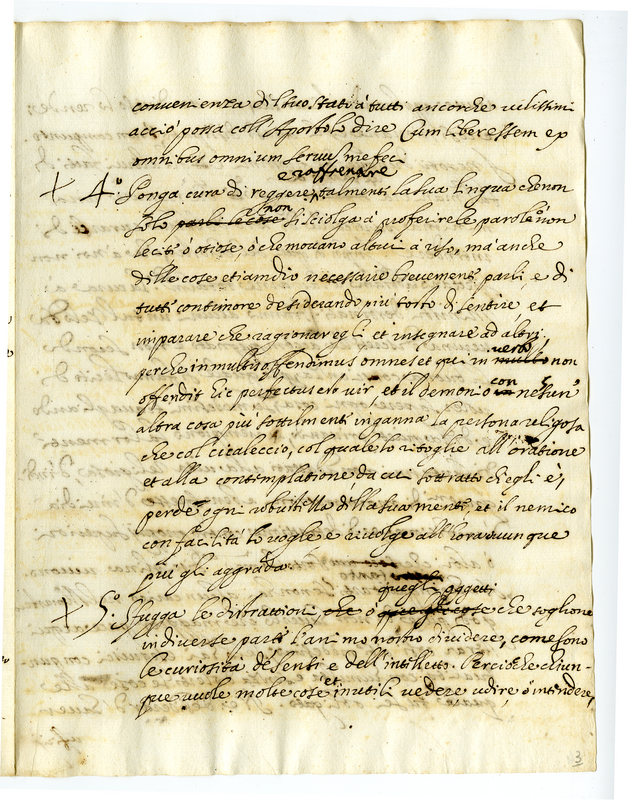 convenienza di suo stato à tutti ancorche vilissimi
acciò possa coll'Apostolo dire Cum liber essem ex
omnibus omnium servum me feci
e raffrenare
+ 4.° Ponga cura di reggere talmente la sua lingua che non
non
solo parli le cose si sciolga à proferire le parole non
lecite ò otiose, ò che movano altrui à riso, mà anche
delle cose etiamdio necessarie brevemente parli, e di
tutte con timore desiderando più tosto di sentire et
imparare che ragionar egli et insegnare ad altri,
verbo
perche in multis offendimus omnes et qui in multo non
con
offendit hic perfectus est vir, et il demonio nesun'
altra cosa più sottilmente inganna la persona religosa
che col cicaleccio, col quale lo ritoglie all'oratione
et alla contemplatione da cui sottratto ch'egli è,
perde ogni robustezza della sua mente, et il nemico
con facilità lo voglie e rivolge all'hora ovunque
più gli aggrada.
quegli oggetti
+ 5.° Sfugga le distrattioni che ò quegle cose che sogliono
in diverse parti l'animo nostro dividere, come sono
le curiosità de sensi e dell'intelletto. Percioche chiun-
et
que vuole molte cose inutili vedere udire ò intendere,
3